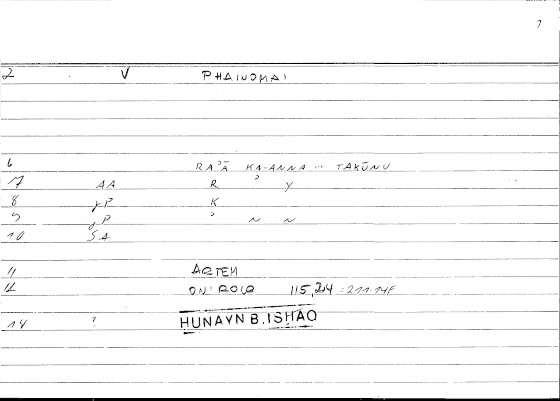 7
2 V PHAINOMAI
6 RAʾĀ KA-ANNA ... TAKŪNU
7 AA R ʾ Y
8 gP K
9 gP ʾ ~ ~
10 SA
11 ARTEM
12 ONIROCR 115,24 : 211.14F
14 ? HUNAYN B. ISHAQ